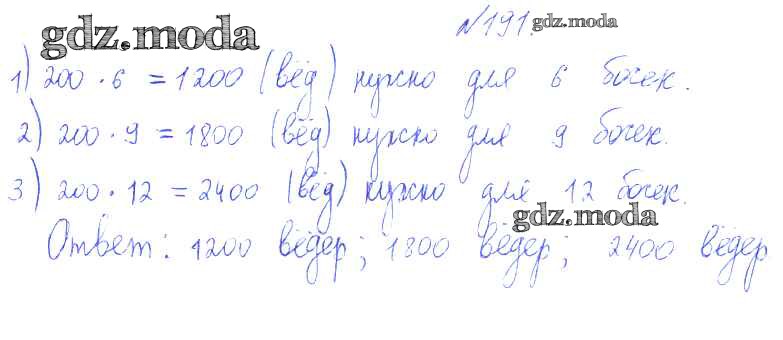 №191. gdz.moda
gdz.moda
1) 200 · 6 = 1200 (вёд) нужно для 6 бочек.
2) 200 · 9 = 1800 (вёд) нужно для 9 бочек.
3) 200 · 12 = 2400 (вёд) нужно для 12 бочек.
gdz.moda
Ответ: 1200 вёдер; 1800 вёдер; 2400 вёдер